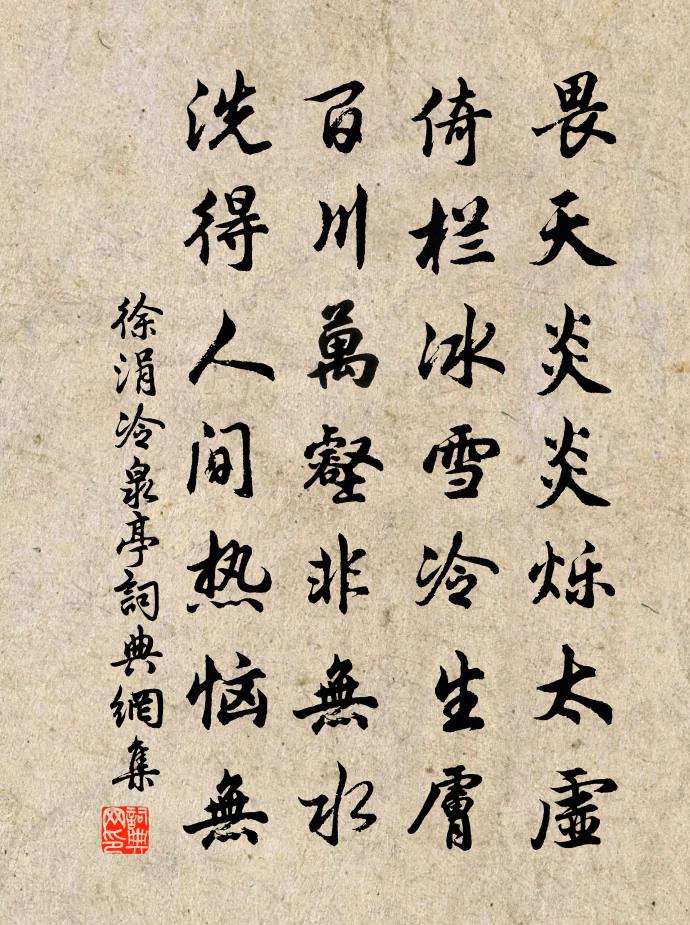 畏天炎炎烁太虛
倚栏冰雪冷生膚
百川萬壑非無水
洗得人间热恼無
徐涓冷泉亭詞典網集
詞典网印